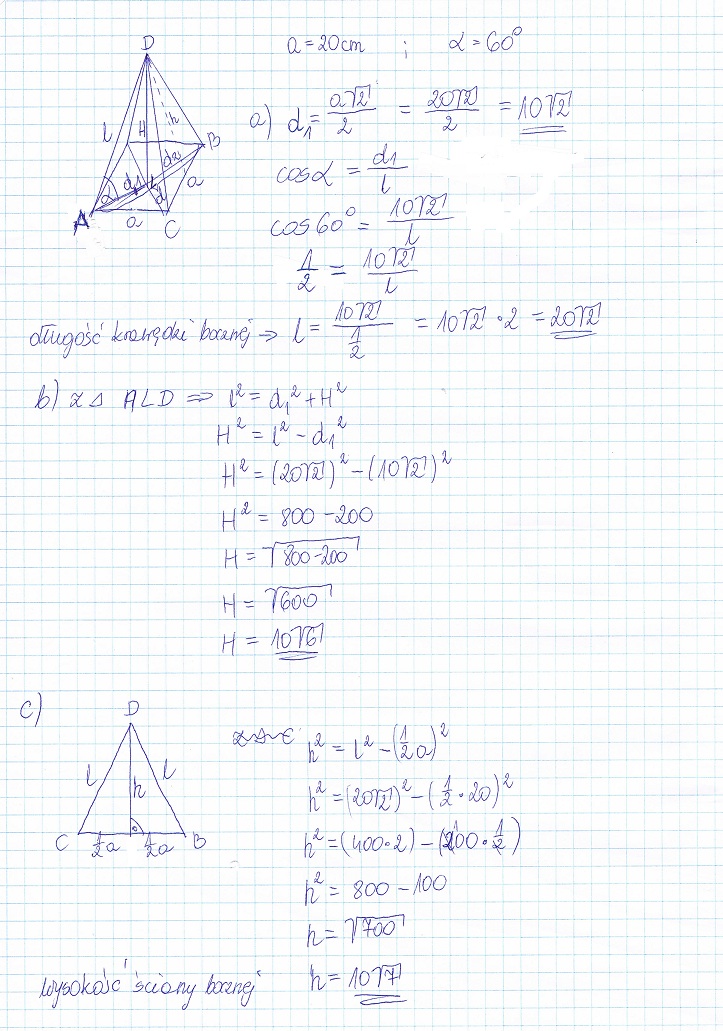 a = 20cm ; α = 60°
D
l H h B
α d₁ L d d₂ a
A a C
a) d₁ = a√2/2 = 20√2/2 = 10√2
cosα = d₁/l
cos60° = 10√2/l
1/2 = 10√2/l
długość krawędzi bocznej ⇒ l = 10√2/(1/2) = 10√2 · 2 = 20√2
b) z △ ALD ⇒ l² = d₁² + H²
H² = l² - d₁²
H² = (20√2)² - (10√2)²
H² = 800 - 200
H = √800-200
H = √600
H = 10√6
c)
D
l h l
C 1/2a 1/2a B
h² = l² - (1/2a)²
h² = (20√2)² - (1/2 · 20)²
h² = (400 · 2) - (200 · 1/2)
h² = 800 - 100
h = √700
wysokość ściany bocznej h = 10√7